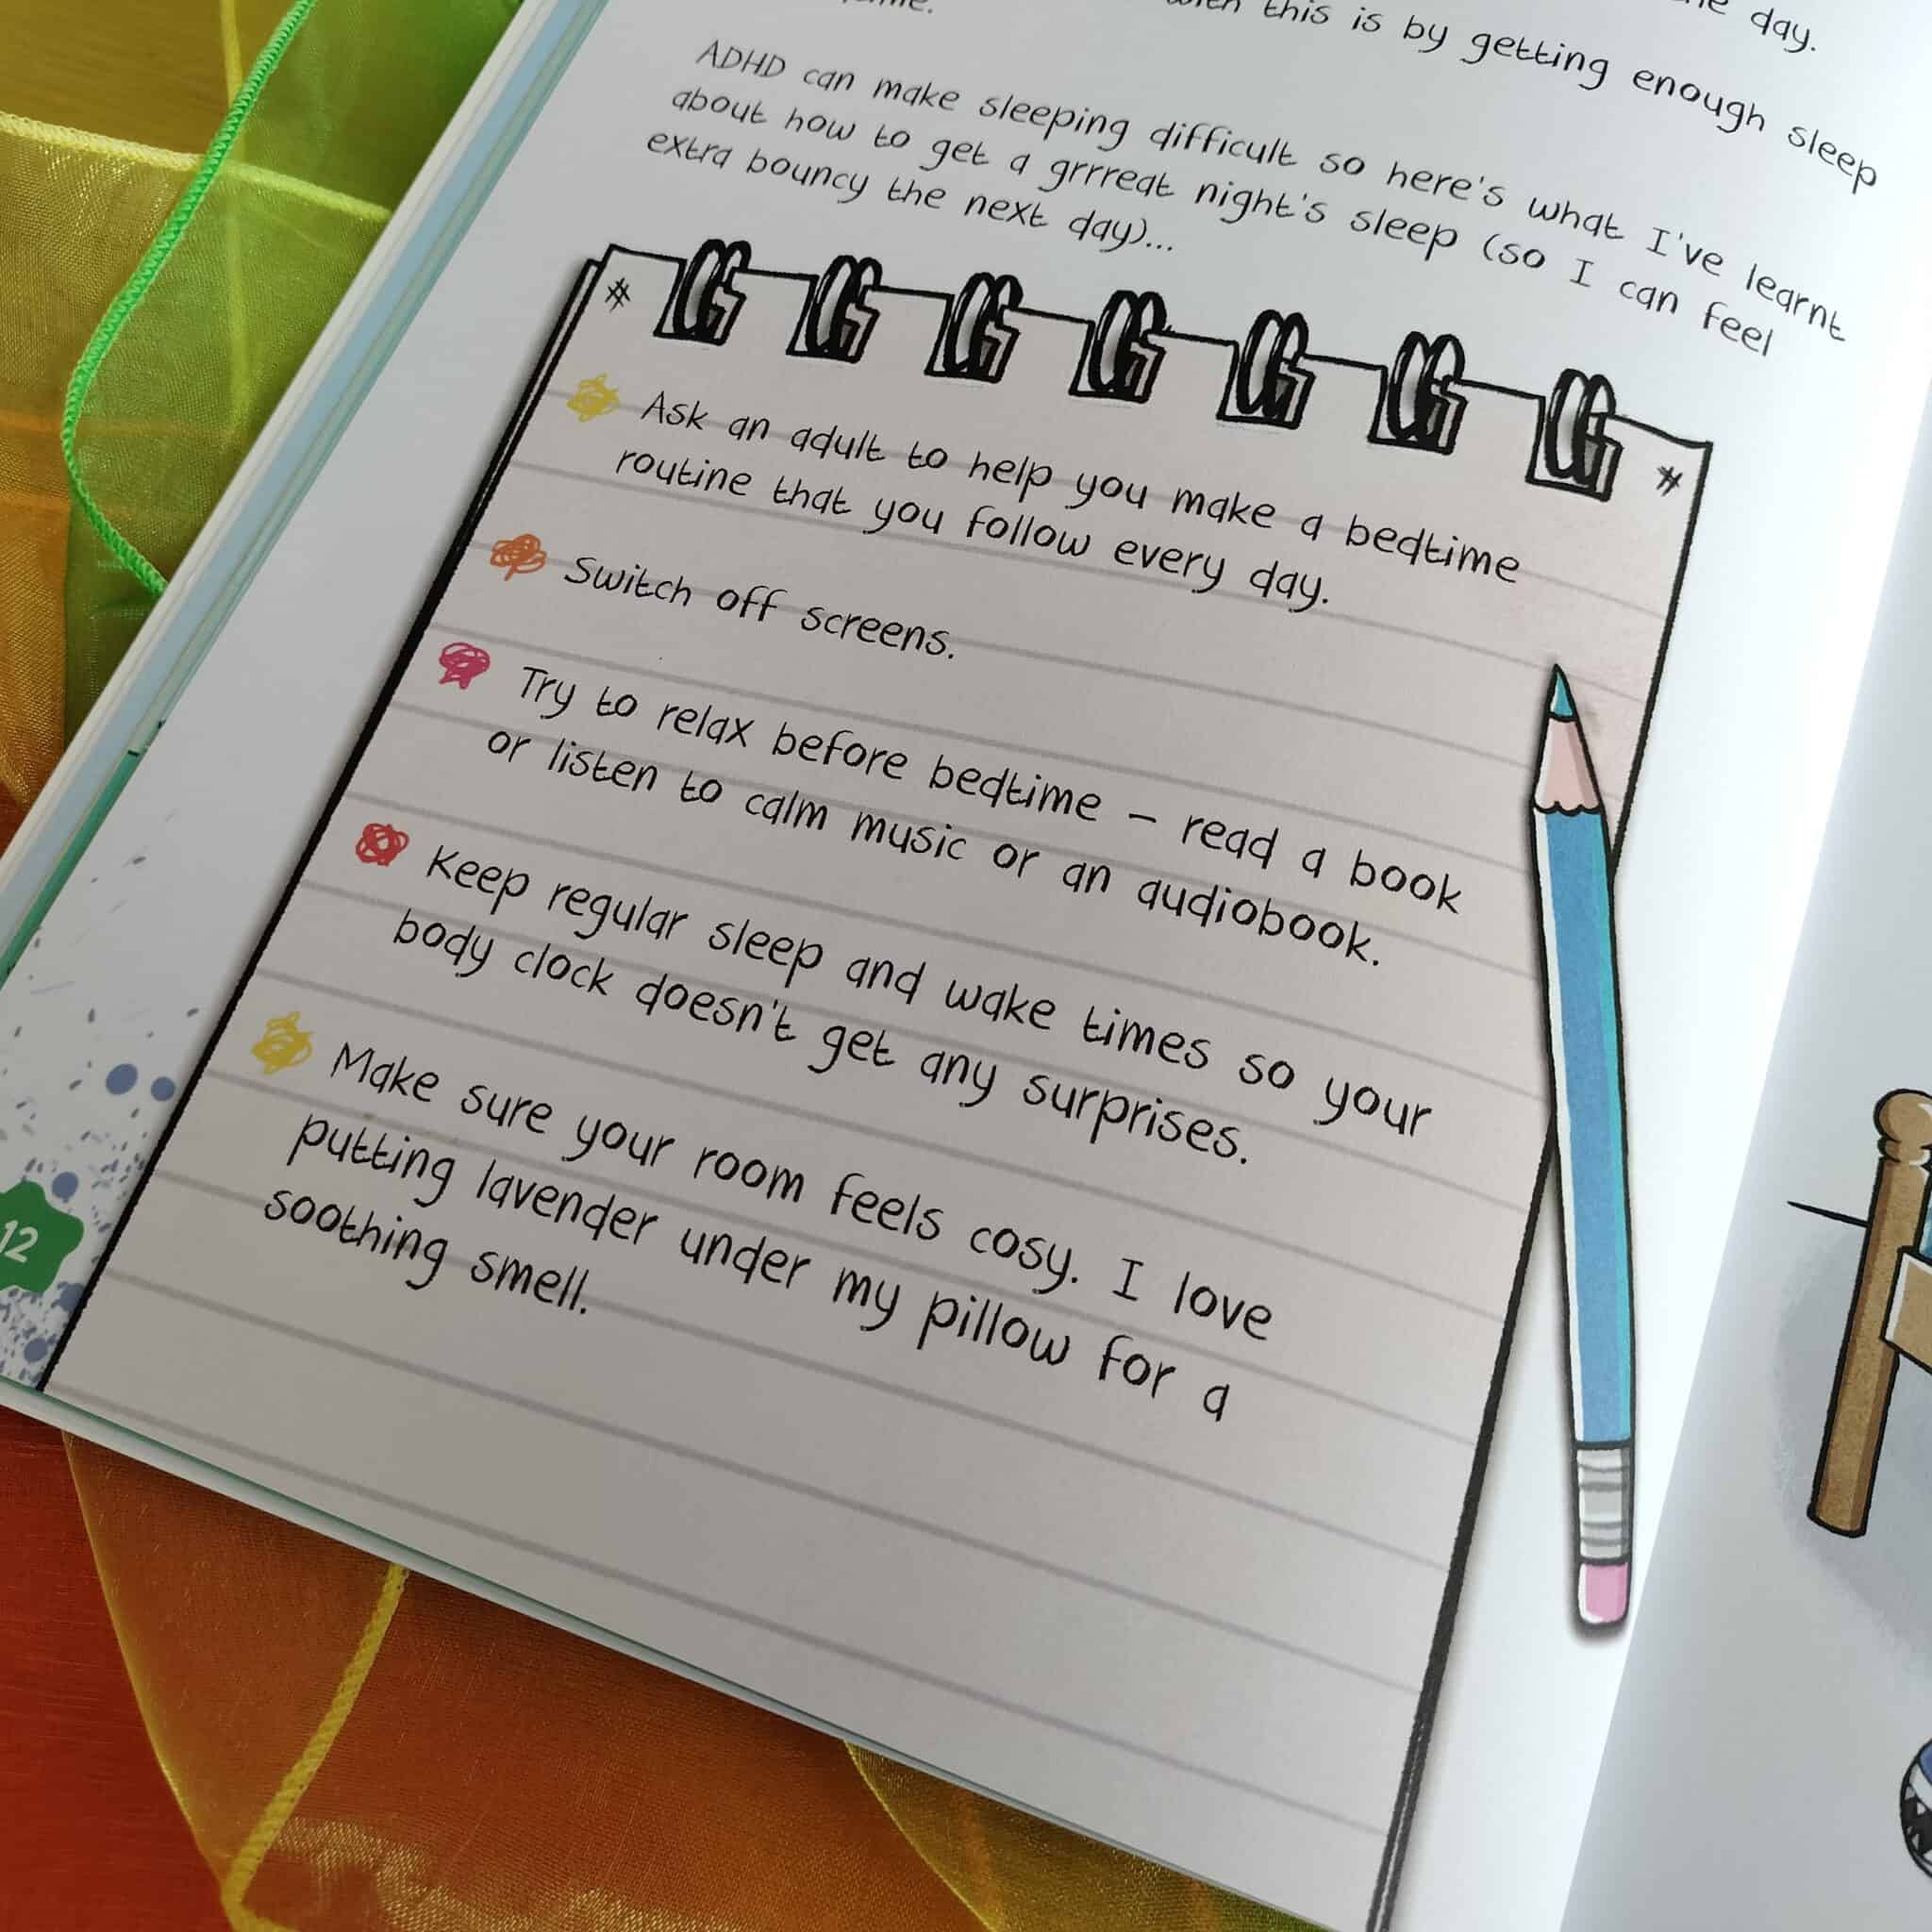 day.
this is by getting enough sleep
ADHD can make sleeping difficult so here's what I've learnt
about how to get a grrreat night's sleep (so I can feel
extra bouncy the next day)...
Ask an adult to help you make a bedtime
routine that you follow every day.
Switch off screens.
Try to relax before bedtime – read a book
or listen to calm music or an audiobook.
Keep regular sleep and wake times so your
body clock doesn't get any surprises.
Make sure your room feels cosy. I love
putting lavender under my pillow for a
soothing smell.
12